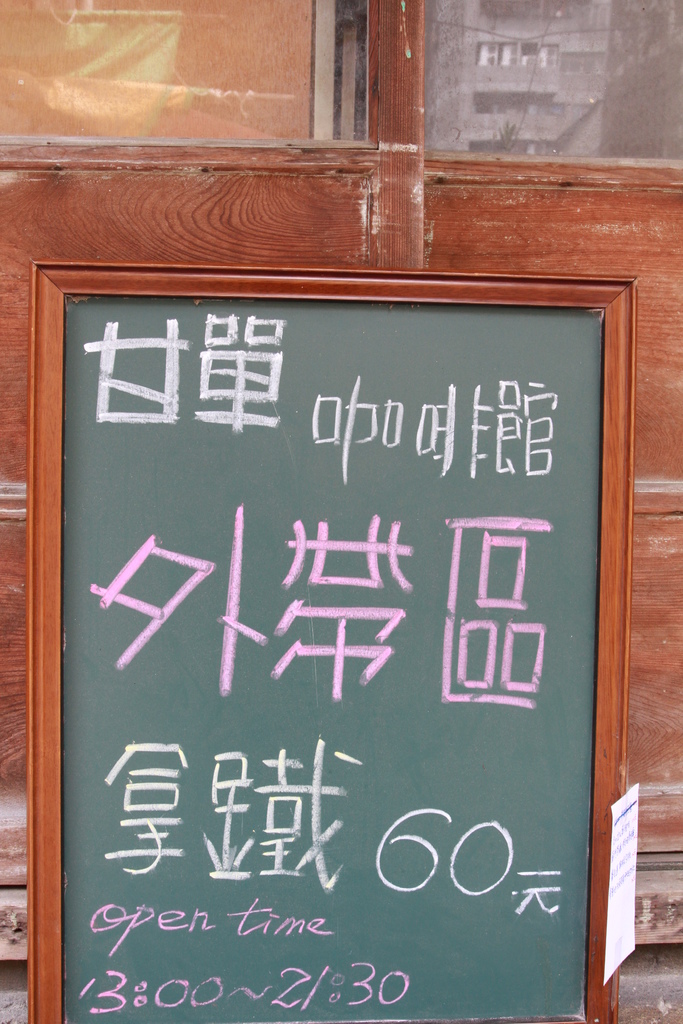 甘單 咖啡館
外帶區
拿鐵 60元
open time
13:00~21:30